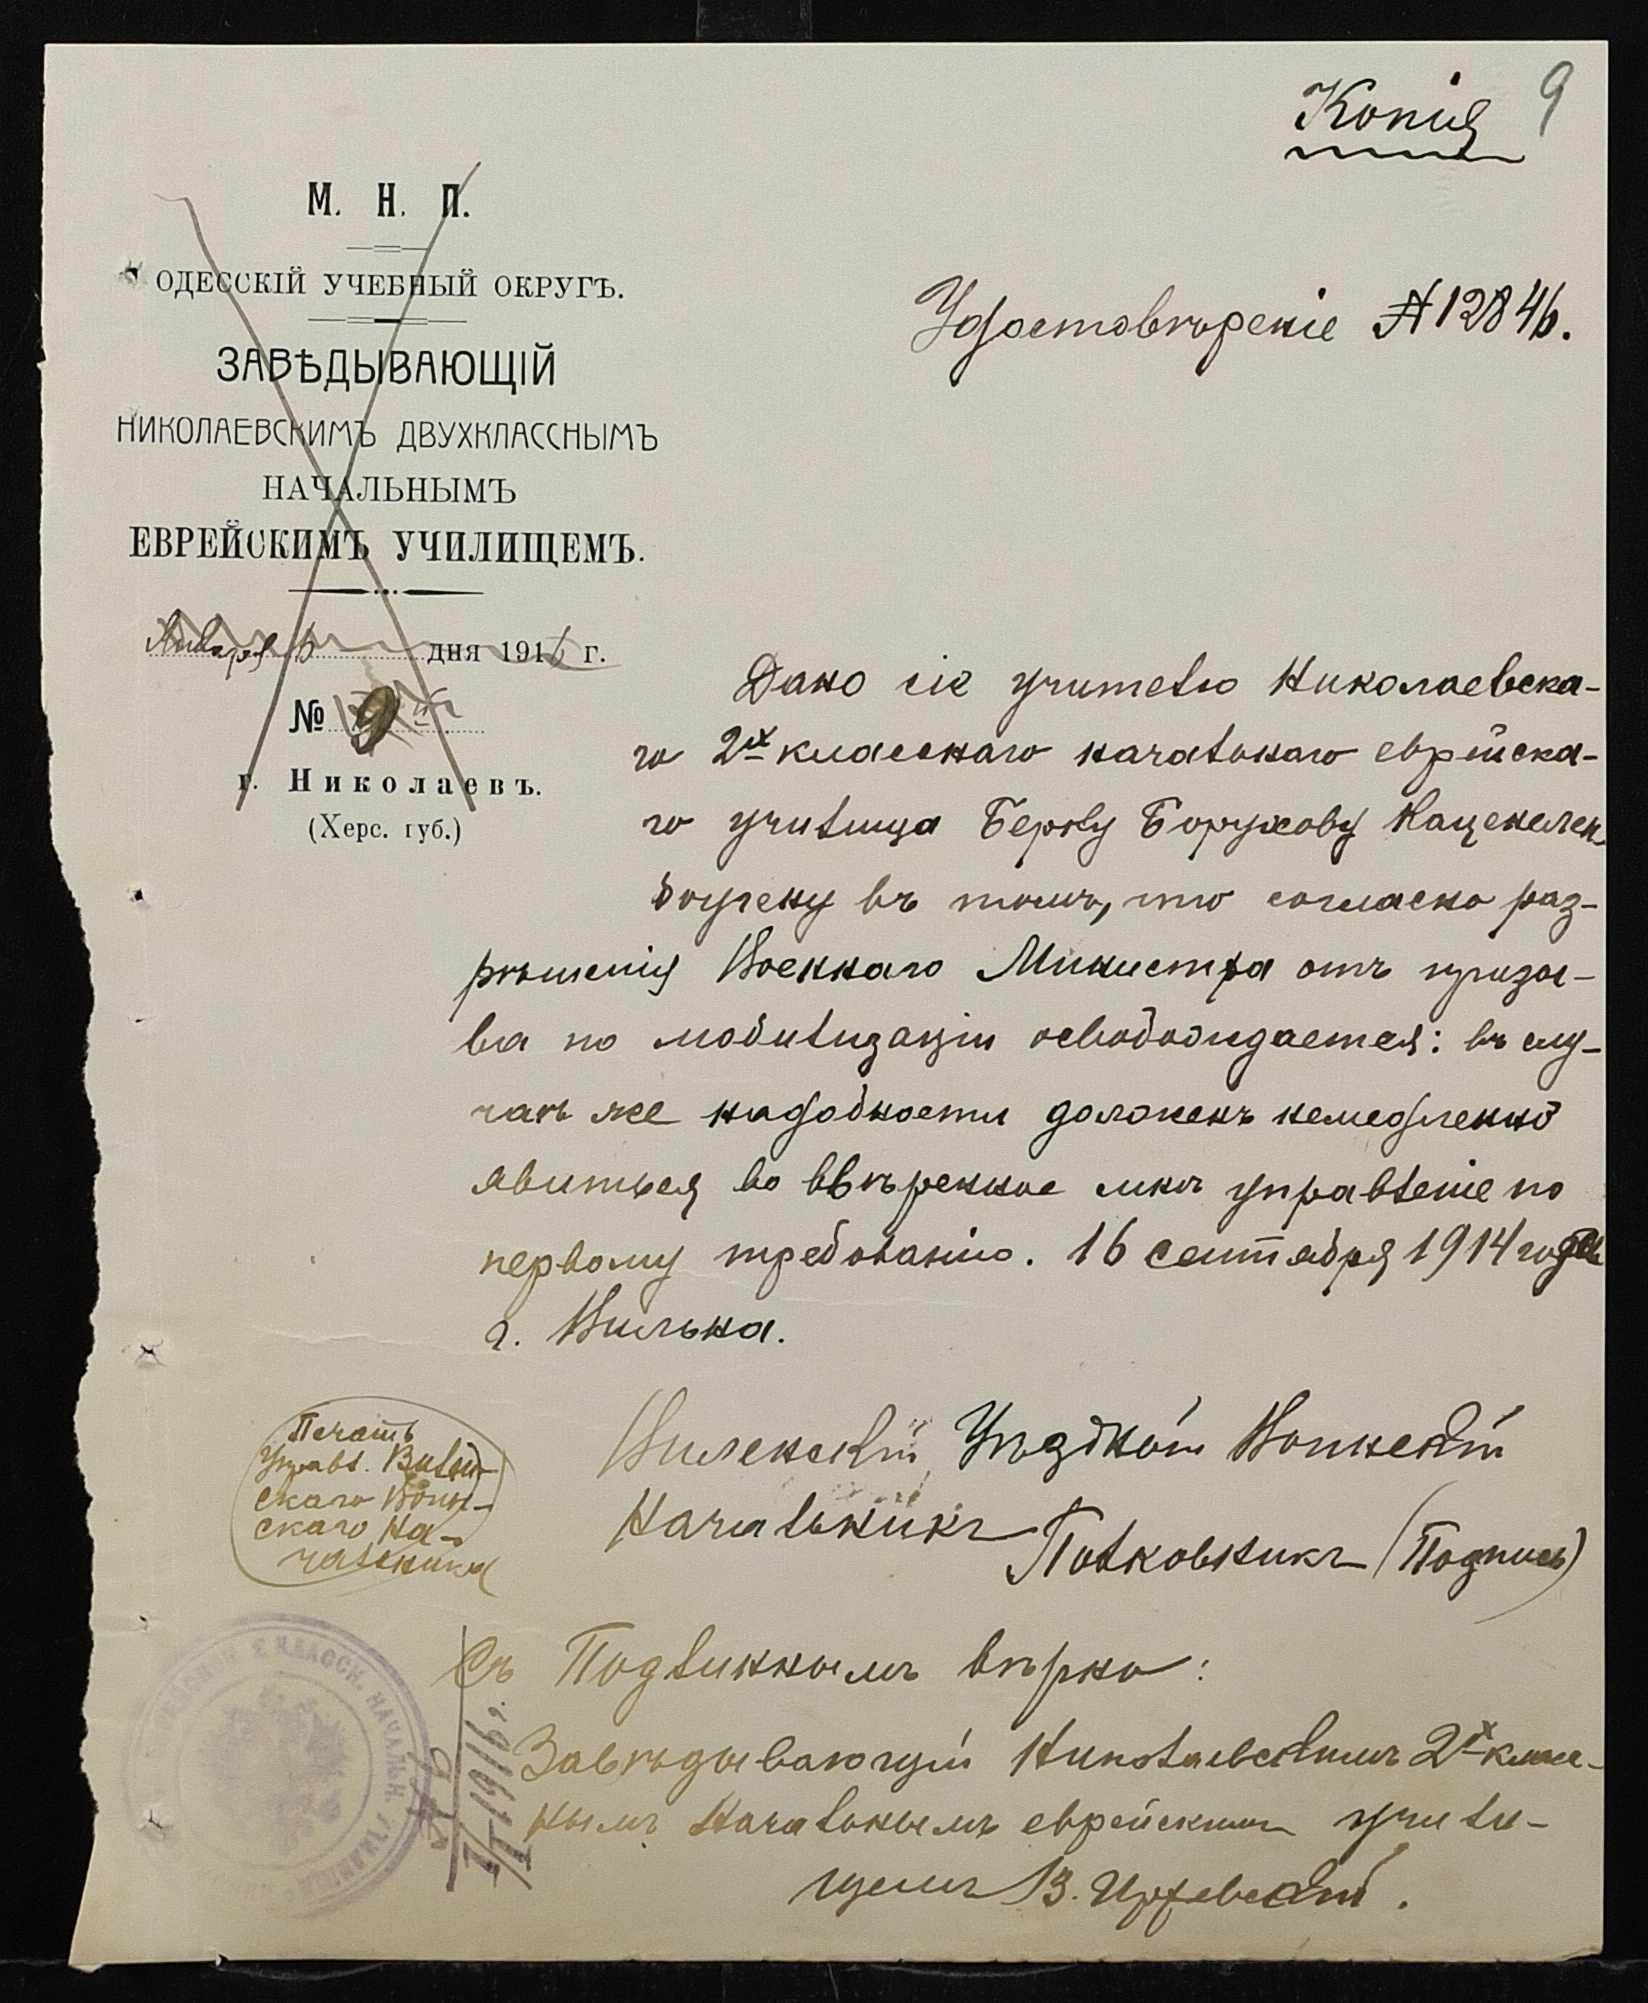 Копія 9
М. Н. П.
ОДЕССКІЙ УЧЕБНЫЙ ОКРУГЪ.
ЗАВѢДЫВАЮЩІЙ
НИКОЛАЕВСКИМЪ ДВУХКЛАССНЫМЪ
НАЧАЛЬНЫМЪ
ЕВРЕЙСКИМЪ УЧИЛИЩЕМЪ.
Января дня 1916 г.
№ 9
г. Николаевъ.
(Херс. губ.)
Удостовѣреніе № 12846.
Дано сіе учителю Николаевска-
го 2х класснаго начальнаго еврейска-
го училища Берку Борухову Кацеелен-
богену въ томъ, что согласно раз-
рѣшенія Военнаго Министра отъ призы-
ва по мобилизаціи освобождается: въ слу-
чаѣ же надобности долженъ немедленно
явиться во ввѣренное мнѣ управленіе по
первому требованію. 16 сентября 1914 года
г. Вильна.
Виленскій Уѣздный Воинскій
Начальникъ
Полковникъ (Подпись)
Печать
Управл. Вилен-
скаго Воин-
скаго На-
чальника
Съ Подлиннымъ вѣрно:
Завѣдывающій Николаевскимъ 2х клас-
нымъ Начальнымъ еврейскимъ учили-
щемъ В.
1916 г.
2 КЛАССН. НАЧАЛЬН.